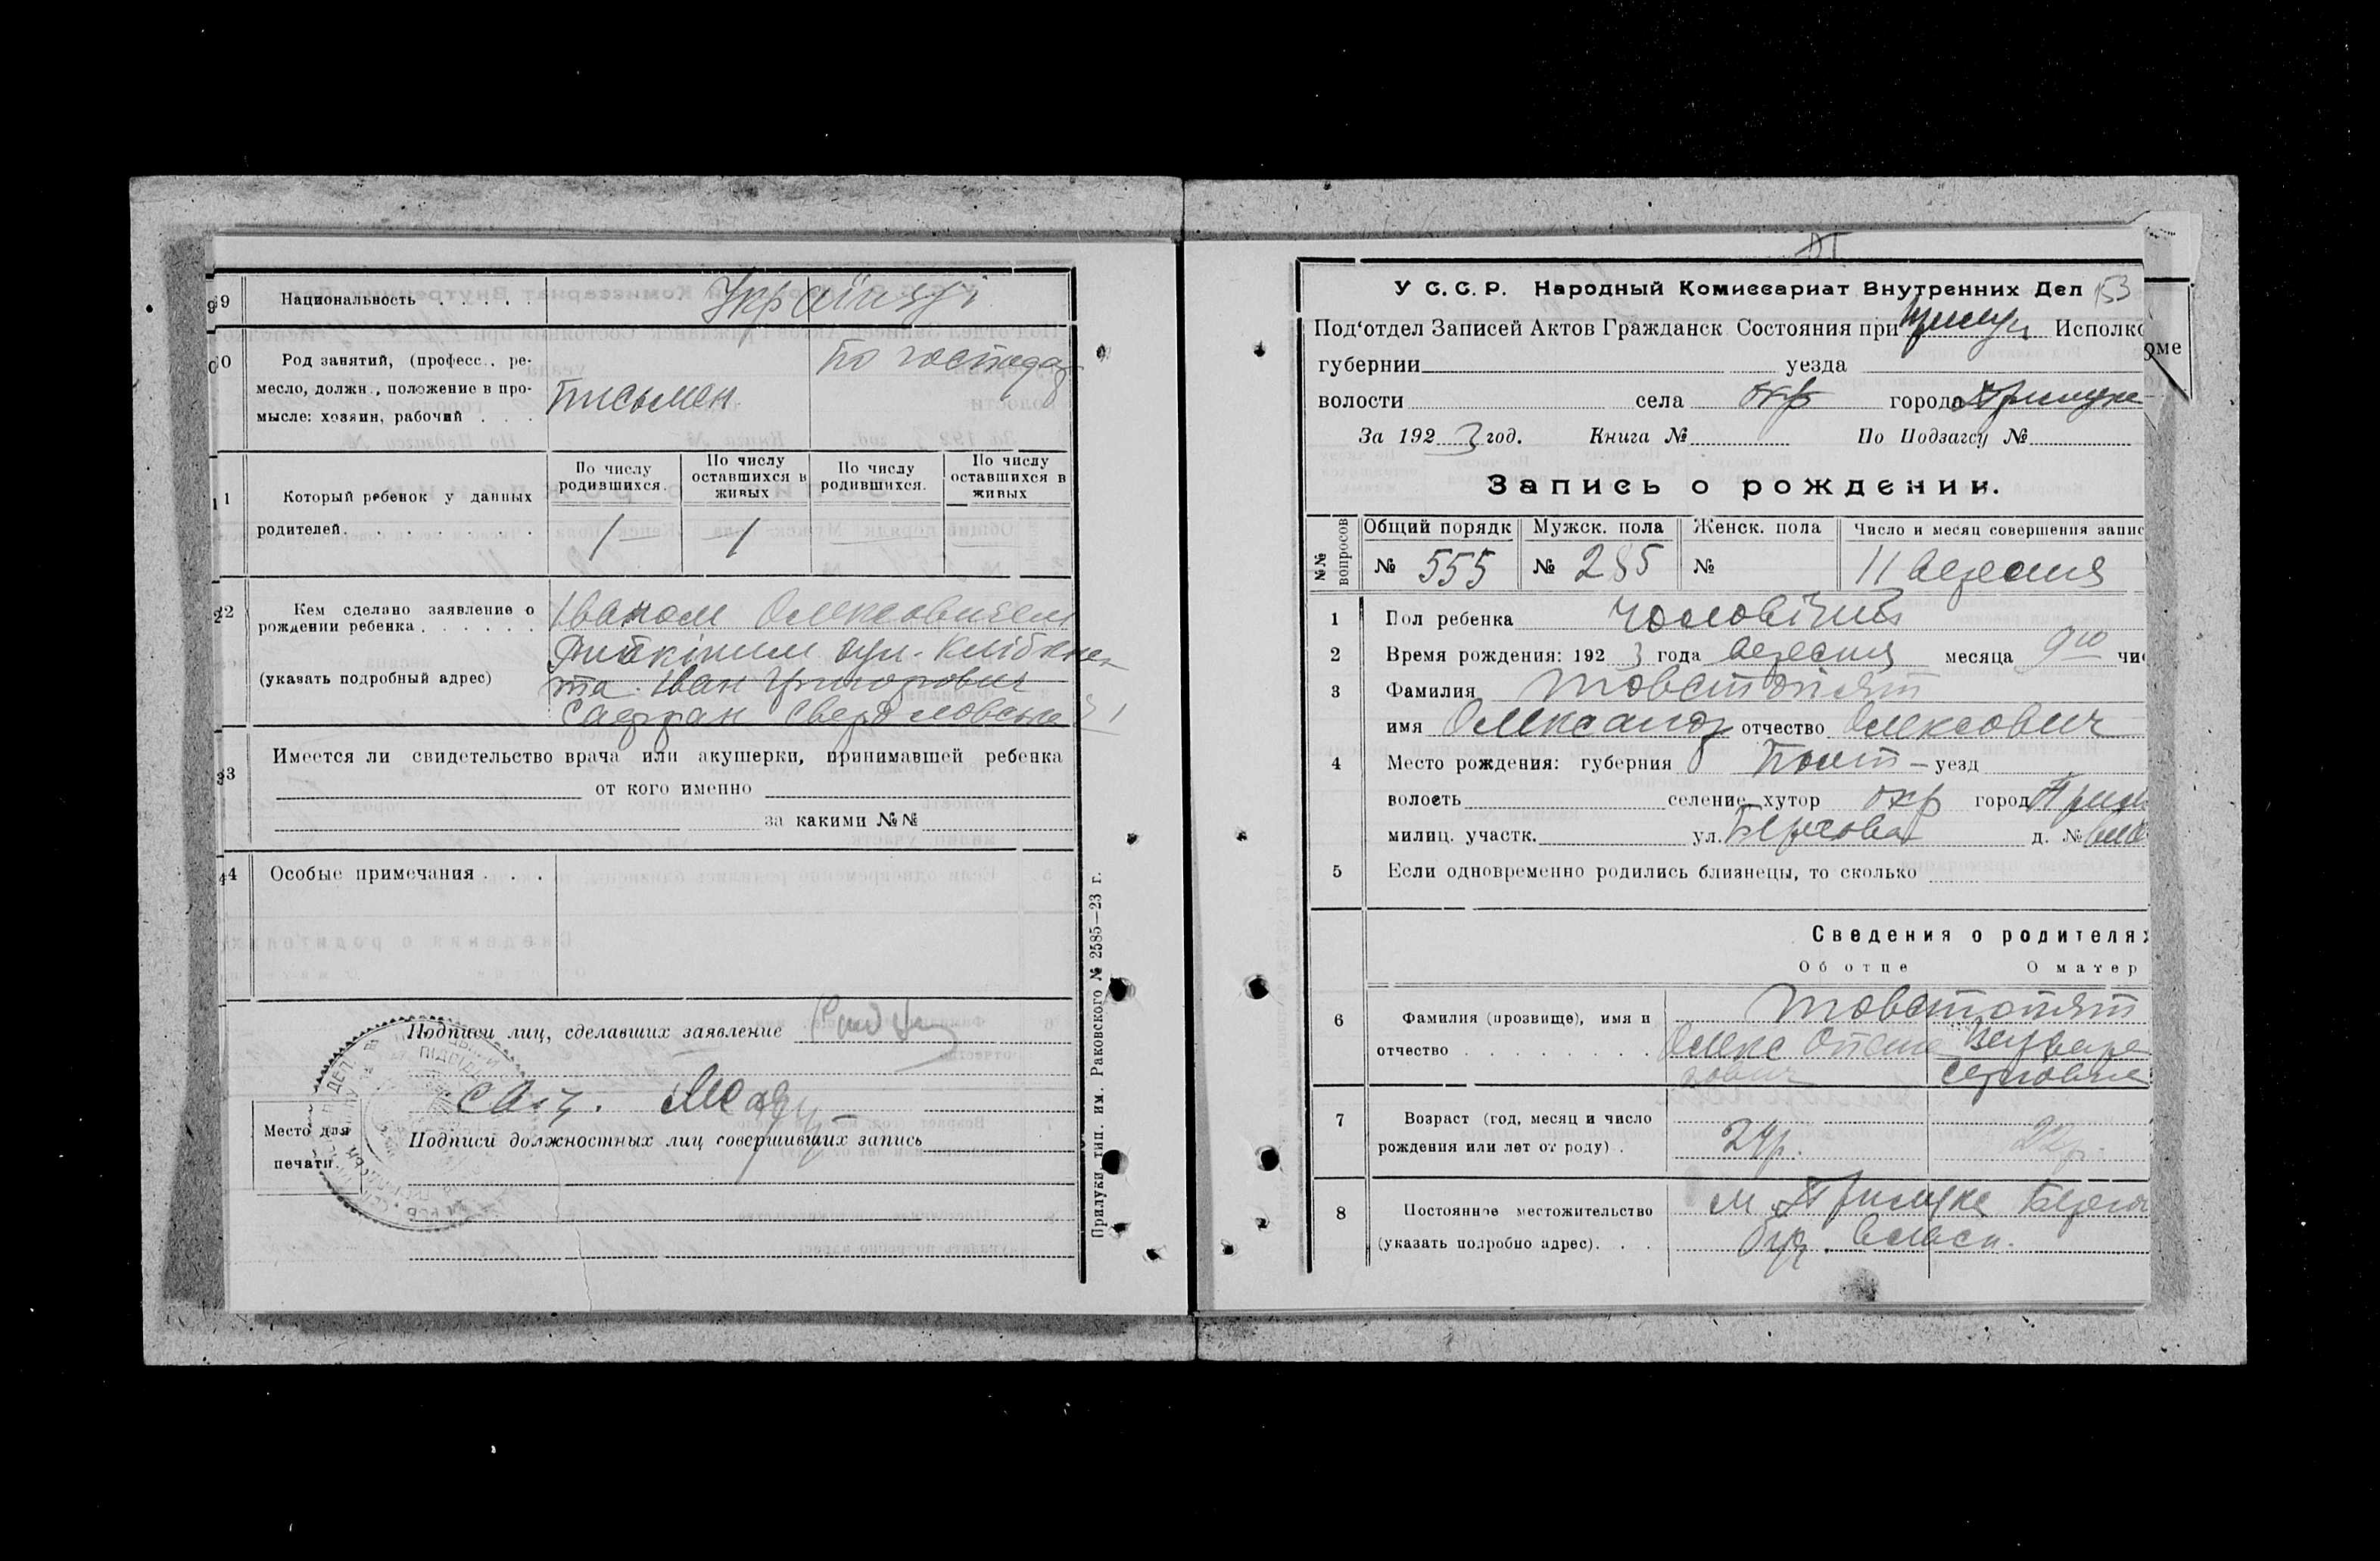 9 Национальность . . . . Українці
10 Род занятий, (професс., ре-
месло, должн., положение в про-
мысле: хозяин, рабочий . . .
Письмен
По господар
11 Который ребенок у данных
родителей. . . . . . .
По числу родившихся.
По числу оставшихся в живых
По числу родившихся.
По числу оставшихся в живых
1 1
12 Кем сделано заявление о
рождении ребенка . . . . . .
(указать подробный адрес)
Іваном Олексовичем
вул.
та Іван Григорович
Сафран Свердловська 31
13 Имеется ли свидетельство врача или акушерки, принимавшей ребенка
от кого именно
за какими №№
14 Особые примечания . . .
Подписи лиц, сделавших заявление
Место для
печати.
Подписи должностных лиц совершивших запись
Прилуки, тып. им. Раковского № 2585—23 г.
У С.С.Р. Народный Комиссариат Внутренних Дел 153
Под'отдел Записей Актов Гражданск Состояния при Прилуц Исполко
губернии уезда
волости села окр города Прилуке
За 192 3 год. Книга № По Подзагсу №
Запись о рождении.
№№ вопросов
Общий порядк Мужск. пола Женск. пола Число и месяц совершения запис
№ 555 № 285 № 11 вересня
1 Пол ребенка чоловічий
2 Время рождения: 192 3 года вересня месяца 9го чис
3 Фамилия Товстопят
имя Олександр отчество Олексович
4 Место рождения: губерния Полт — уезд
волость селение, хутор окр город Прил
милиц. участк. ул. Бергова д. №
5 Если одновременно родились близнецы, то сколько
Сведения о родителях
Об отце О матер
6 Фамилия (прозвище), имя и
отчество . . . . . . . .
Товстопят
Олекс
7 Возраст (год, месяц и число
рождения или лет от роду) .
24р. 22р.
8 Постоянное местожительство
(указать подробно адрес). . .
м. Прилуке
буд. власн.